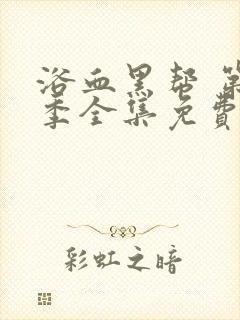 浴血黑帮 第
季全集免费
彩虹之暗